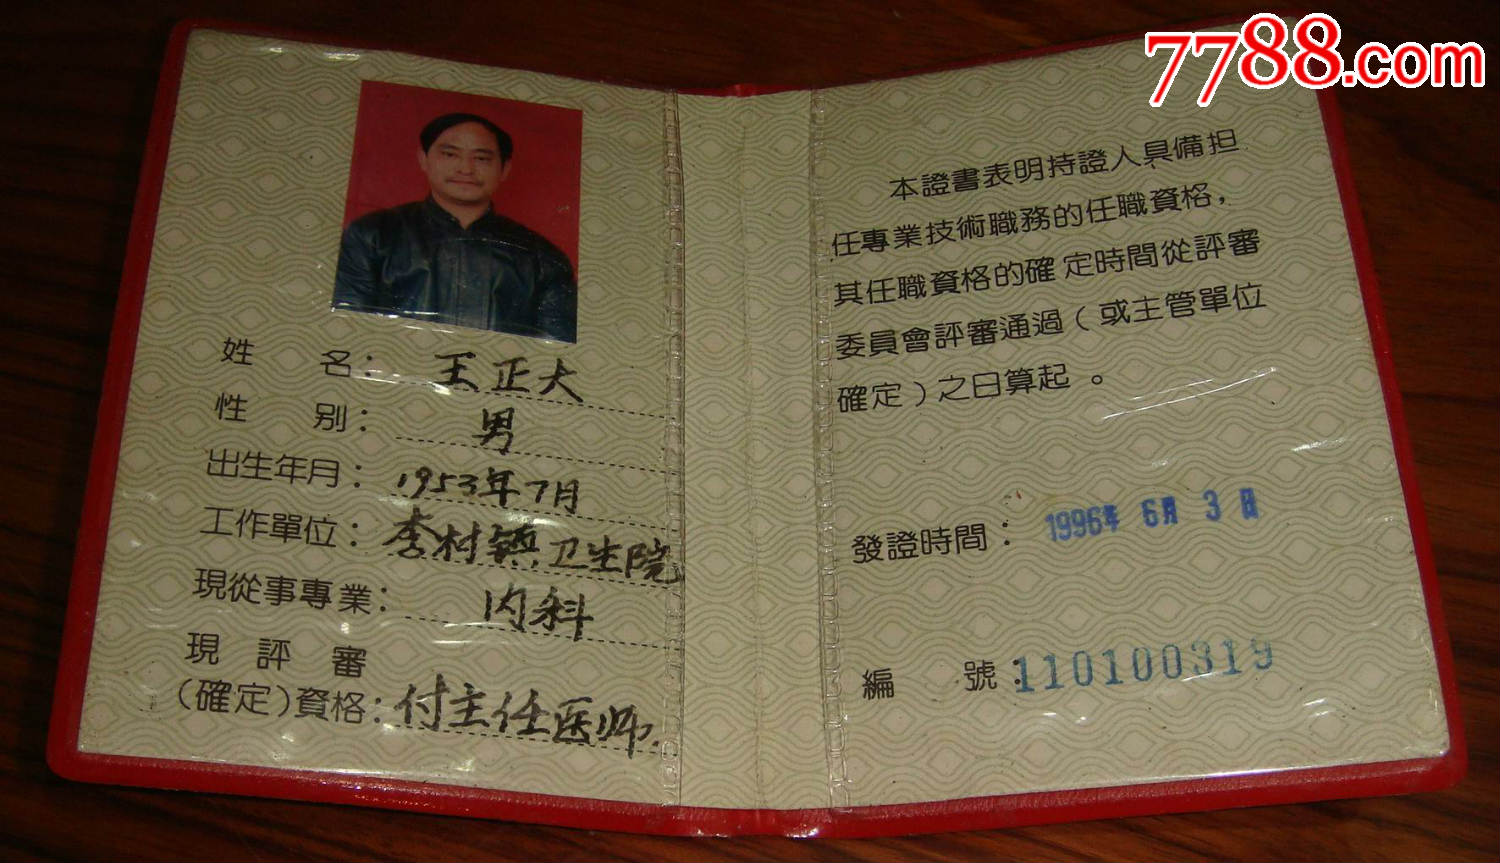 7788.com
姓 名：王正大
性 别：男
出生年月：1953年7月
工作單位：李村镇卫生院
現從事專業：内科
現 評 審
（確定）資格：付主任医师.
本證書表明持證人具備担
任專業技術職務的任職資格，
其任職資格的確定時間從評審
委員會評審通過（或主管單位
確定）之日算起。
發證時間：1996年 6月 3日
編 號：110100319